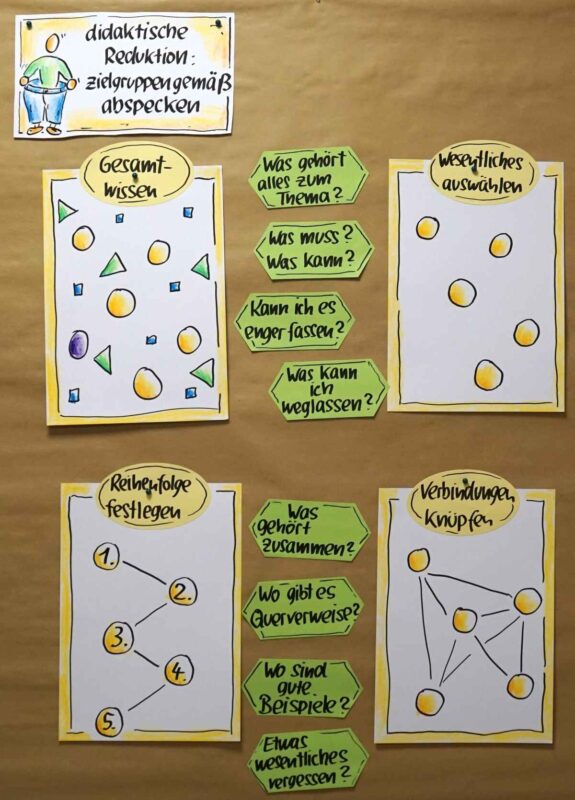 didaktische
Reduktion:
zielgruppengemäß
abspecken
Gesamt-
wissen
Was gehört
alles zum
Thema?
Was muss?
Was kann?
Kann ich es
enger fassen?
Was kann
ich
weglassen?
Wesentliches
auswählen
Reihenfolge
festlegen
1.
2.
3.
4.
5.
Was
gehört
zusammen?
Wo gibt es
Querverweise?
Wo sind
gute
Beispiele?
Etwas
wesentliches
vergessen?
Verbindungen
Knüpfen